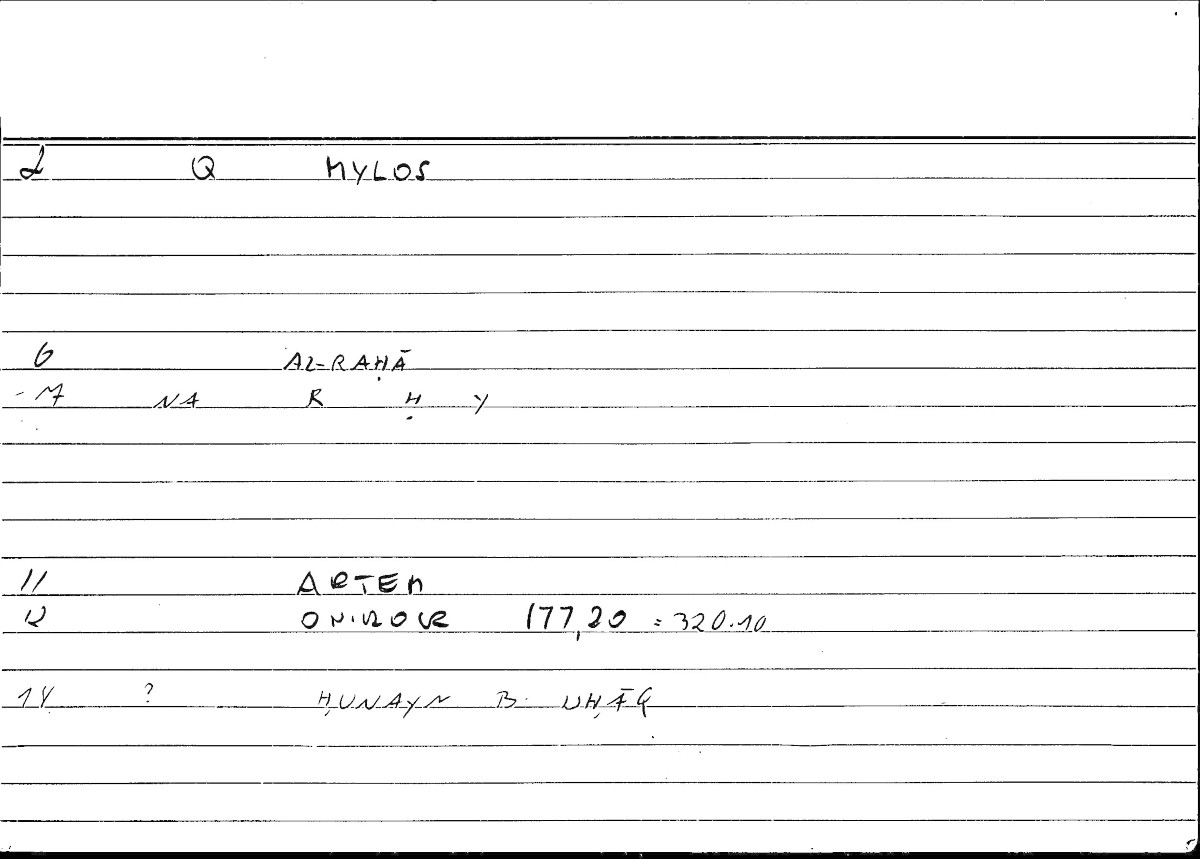 2 Q MYLOS
6 AL-RAḤĀ
-M NA R Ḥ Y
11 ARTEM
12 ONIROCR 177,20 = 320.10
14 ? ḤUNAYN B.